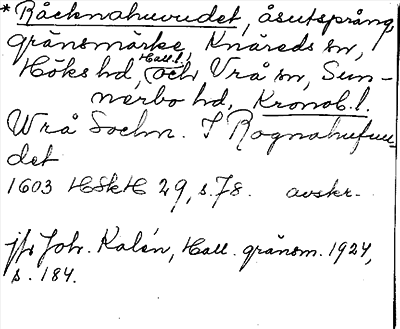 * Råcknahuvudet, åsutsprång,
gränsmärke, Knäreds sn,
Höks hd, Hall.l., och Vrå sn, Sun-
nerbo hd, Kronob.l.
Wrå Sochn. I Rognahufuu-
det
1603 HSkH 29, s. 78. avskr.
jfr Joh. Kalén, Hall. gränsm. 1924,
s. 184.